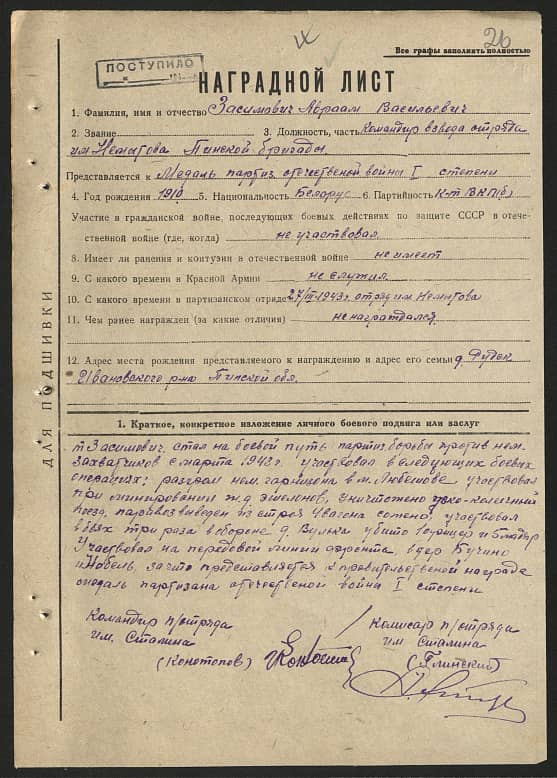 26
Все графы заполнять полностью
ПОСТУПИЛО
НАГРАДНОЙ ЛИСТ
1. Фамилия, имя и отчество Засимович Авраам Васильевич
2. Звание 3. Должность, часть Командир взвода отряда
им Немытова Пинской бригады
Представляется к Медаль партиз. отечественой войны I степени
4. Год рождения 1910 5. Национальность Белорус 6. Партийность К-т ВКП(б)
Участие в гражданской войне, последующих боевых действиях по защите СССР в отече-
ственной войне (где, когда) не участвовал
8. Имеет ли ранения и контузии в отечественной войне не имеет
9. С какого времени в Красной Армии не служил
10. С какого времени в партизанском отряде 27/III-1943г. отряд им Немытова
11. Чем ранее награжден (за какие отличия) ненаграждался
12. Адрес места рождения представляемого к награждению и адрес его семьи д.
Ивановского р-на Пинской обл.
ДЛЯ ПОДШИВКИ
1. Краткое, конкретное изложение личного боевого подвига или заслуг
т Засимович стал на боевой путь партиз. борьбы против нем.
захватчиков с марта 1943г. участвовал в следующих боевых
операциях: разгром нем. гарнизона в м. Любешове участвовал
при минировании ж.д эшелонов, уничтожено узко-колейный
поезд, паровоз выведен из строя 4 вагона участвовал
в боях три раза в обороне д. Вулька убито
Участвовал на передовой линии фронта в дер Кучино
и Нобель, за что представляется к правительственой награде
медаль партизана отечественой войны I степени
Командир п/отряда
им. Сталина
(Конотопов)
Комисар п/отряда
им Сталина
(Глинский)